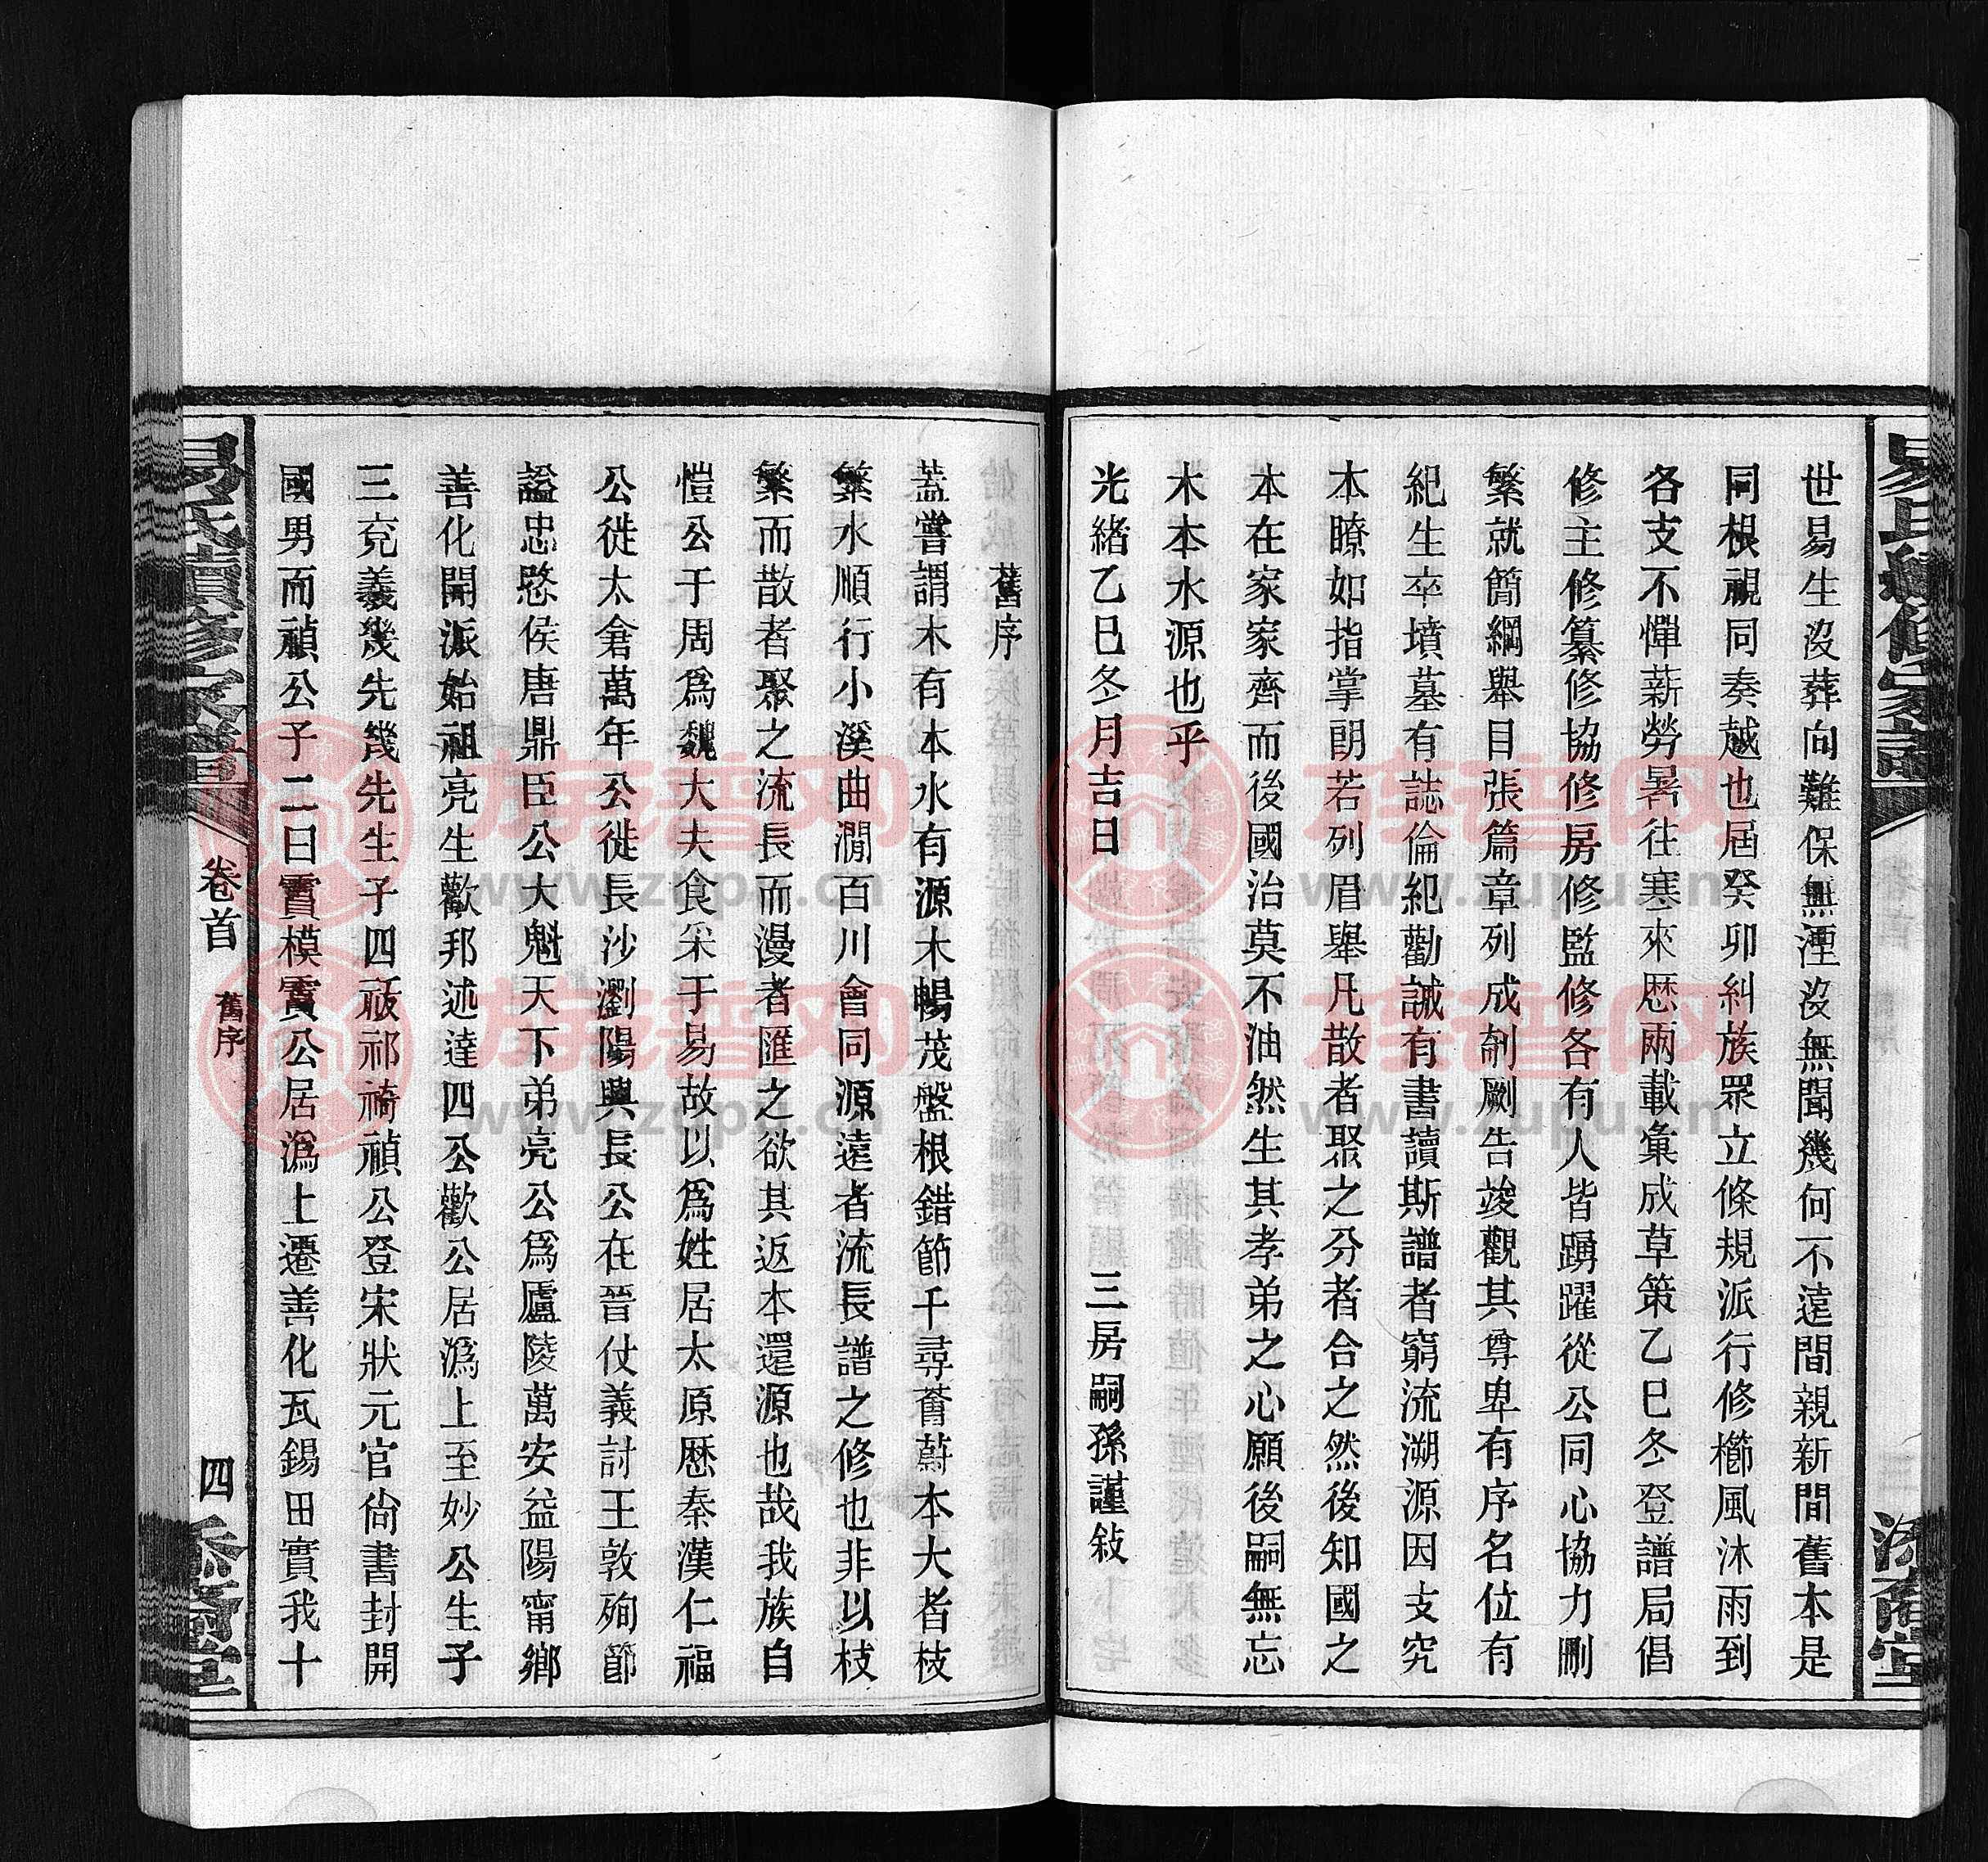 易氏續修家譜
世易生沒葬向難保無湮沒無聞幾何不遠間親新間舊本是
同根視同奏越也屆癸卯糾族眾立條規派行修櫛風沐雨到
各支不憚薪勞暑往寒來歷兩載彙成草策乙巳冬登譜局倡
修主修纂修協修房修監修各有人皆踴躍從公同心協力刪
繁就簡綱舉目張篇章列成剞劂告竣觀其尊卑有序名位有
紀生卒墳墓有誌倫紀勸誡有書讀斯譜者窮流溯源因支究
本瞭如指掌朗若列眉舉凡散者聚之分者合之然後知國之
本在家家齊而後國治莫不油然生其孝弟之心願後嗣無忘
木本水源也乎
光緒乙巳冬月吉日 三房嗣孫謹敍
舊序
蓋嘗謂木有本水有源木暢茂盤根錯節千尋薈蔚本大者枝
繁水順行小溪曲澗百川會同源遠者流長譜之修也非以枝
繁而散者聚之流長而漫者匯之欲其返本還源也哉我族自
愷公于周爲魏大夫食采于易故以爲姓居太原歷秦漢仁福
公徙太倉萬年公徙長沙瀏陽興長公在晉仗義討王敦殉節
謚忠愍侯唐鼎臣公大魁天下弟亮公爲廬陵萬安益陽甯鄉
善化開派始祖亮生歡邦述達四公歡公居溈上至妙公生子
三兗義幾先幾先生子四祓祁禕禎公登宋狀元官尙書封開
國男而禎公子二曰賔模賔公居溈上遷善化瓦錫田實我十
易氏續修家譜
卷首
舊序
四
族譜网
www.zupu.cn
族譜网
www.zupu.cn
族譜网
www.zupu.cn
族譜网
www.zupu.cn